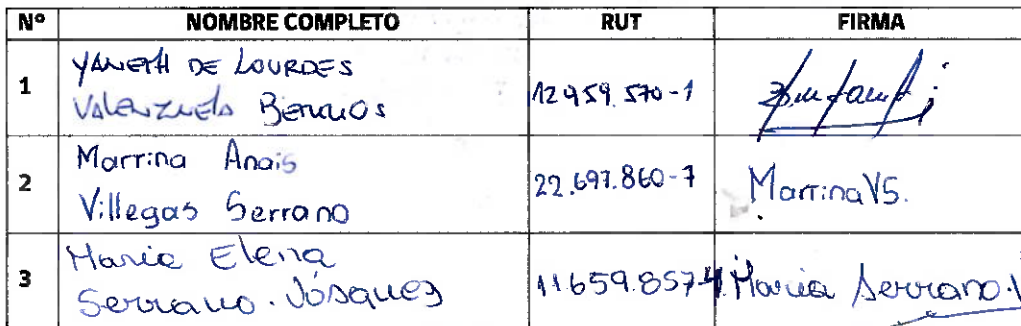 Nº NOMBRE COMPLETO RUT FIRMA
1 YANETH DE LOURDES
VALENZUELA BERRIOS 12.959.570-1
2 Martina Anais
Villegas Serrano 22.697.860-7 Martina VS.
3 Maria Elena
Serrano. Vásquez 11.659.857-4 Maria Serrano.V